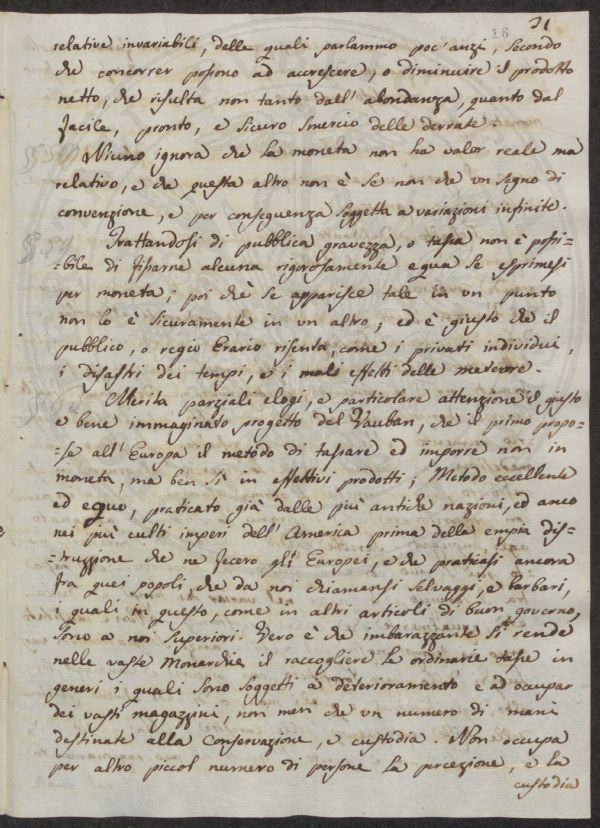 31
16
relative invariabili, delle quali parlammo poc' anzi, secondo
che concorrer possono ad accrescere, o diminuire il prodotto
netto, che risulta non tanto dall' abondanza, quanto dal
facile, pronto, e sicuro smercio delle derrate.
Niuno ignora che la moneta non ha valor reale mà
relativo, e che questa altro non è se non che un segno di
convenzione, e per conseguenza soggetta a variazioni infinite.
§ 59
Trattandosi di pubblica gravezza, o tassa non è possi=
=bile di fissarne alcuna rigorosamente equa se esprimesi
per moneta; poi chè se apparisce tale in un punto
non lo è sicuramente in un altro; ed è giusto che il
pubblico, o regio Erario risenta, come i privati individui,
i disastri dei tempi, e i mali effetti delle meteore.
§ 60
Merita parziali elogi, e particolare attenzione il giusto
e bene immaginato progetto del Vauban, che il primo propo=
=se all' Europa il metodo di tassare ed imporre non in
moneta, ma ben sì in effettivi prodotti; Metodo eccellente
ed equo, praticato già dalle più antiche nazioni, ed anco
nei più culti imperi dell' America prima della empia dis=
=truzzione che ne fecero gli Europei, e che praticasi ancora
fra quei popoli, che da noi chiamansi selvaggi, e barbari,
i quali in questo, come in altri articoli di buon governo,
sono a noi superiori. Vero è che imbarazzante si rende
nelle vaste Monarchie il raccogliere le ordinarie tasse in
generi i quali sono soggetti a deterioramento e ad occupar
dei vasti magazzini, non men che un numero di mani
destinate alla conservazione, e custodia. Non occupa
per altro piccol numero di persone la percezione, e la
custodia